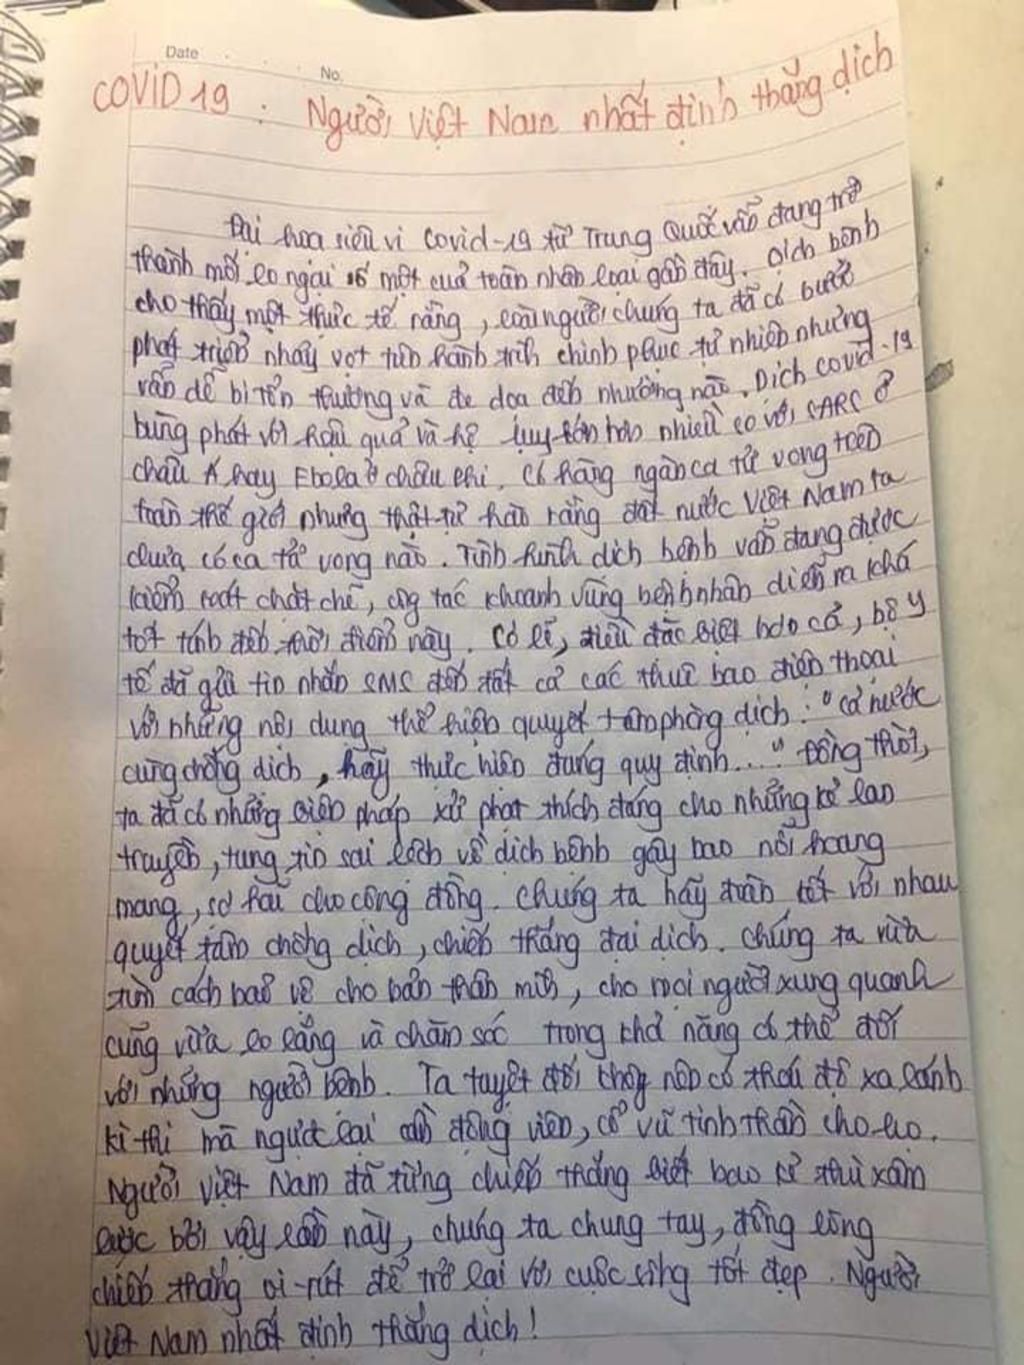 Date
No.
COVID 19 : Người Việt Nam nhất định thắng dịch
Đại họa siêu vi Covid-19 từ Trung Quốc vẫn đang trở
thành mối lo ngại số một của toàn nhân loại gần đây. Dịch bệnh
cho thấy một thực tế rằng, loài người chúng ta đã có bước
phát triển nhảy vọt trên hành trình chinh phục tự nhiên nhưng
vẫn dễ bị tổn thương và đe dọa đến nhường nào. Dịch covid-19
bùng phát với hậu quả và hệ lụy lớn hơn nhiều so với SARS ở
châu Á hay Ebola ở châu Phi. Có hàng ngàn ca tử vong trên
toàn thế giới nhưng thật tự hào rằng đất nước Việt Nam ta
chưa có ca tử vong nào. Tình hình dịch bệnh vẫn đang được
kiểm soát chặt chẽ, công tác khoanh vùng bệnh nhân diễn ra khá
tốt tính đến thời điểm này. Có lẽ, điều đặc biệt hơn cả, bộ y
tế đã gửi tin nhắn SMS đến tất cả các thuê bao điện thoại
với những nội dung thể hiện quyết tâm phòng dịch: "cả nước
cùng chống dịch, hãy thực hiện đúng quy định..." Đồng thời,
ta đã có những biện pháp xử phạt thích đáng cho những kẻ lan
truyền, tung tin sai lệch về dịch bệnh gây bao nỗi hoang
mang, sợ hãi cho cộng đồng. Chúng ta hãy đoàn kết với nhau
quyết tâm chống dịch, chiến thắng đại dịch. Chúng ta vừa
tìm cách bảo vệ cho bản thân mình, cho mọi người xung quanh
cũng vừa lo lắng và chăm sóc trong khả năng có thể đối
với những người bệnh. Ta tuyệt đối không nên có thái độ xa lánh
kì thị mà ngược lại cần động viên, cổ vũ tinh thần cho họ.
Người Việt Nam đã từng chiến thắng biết bao kẻ thù xâm
lược bởi vậy lần này, chúng ta chung tay, đồng lòng
chiến thắng vi-rút để trở lại với cuộc sống tốt đẹp. Người
Việt Nam nhất định thắng dịch!